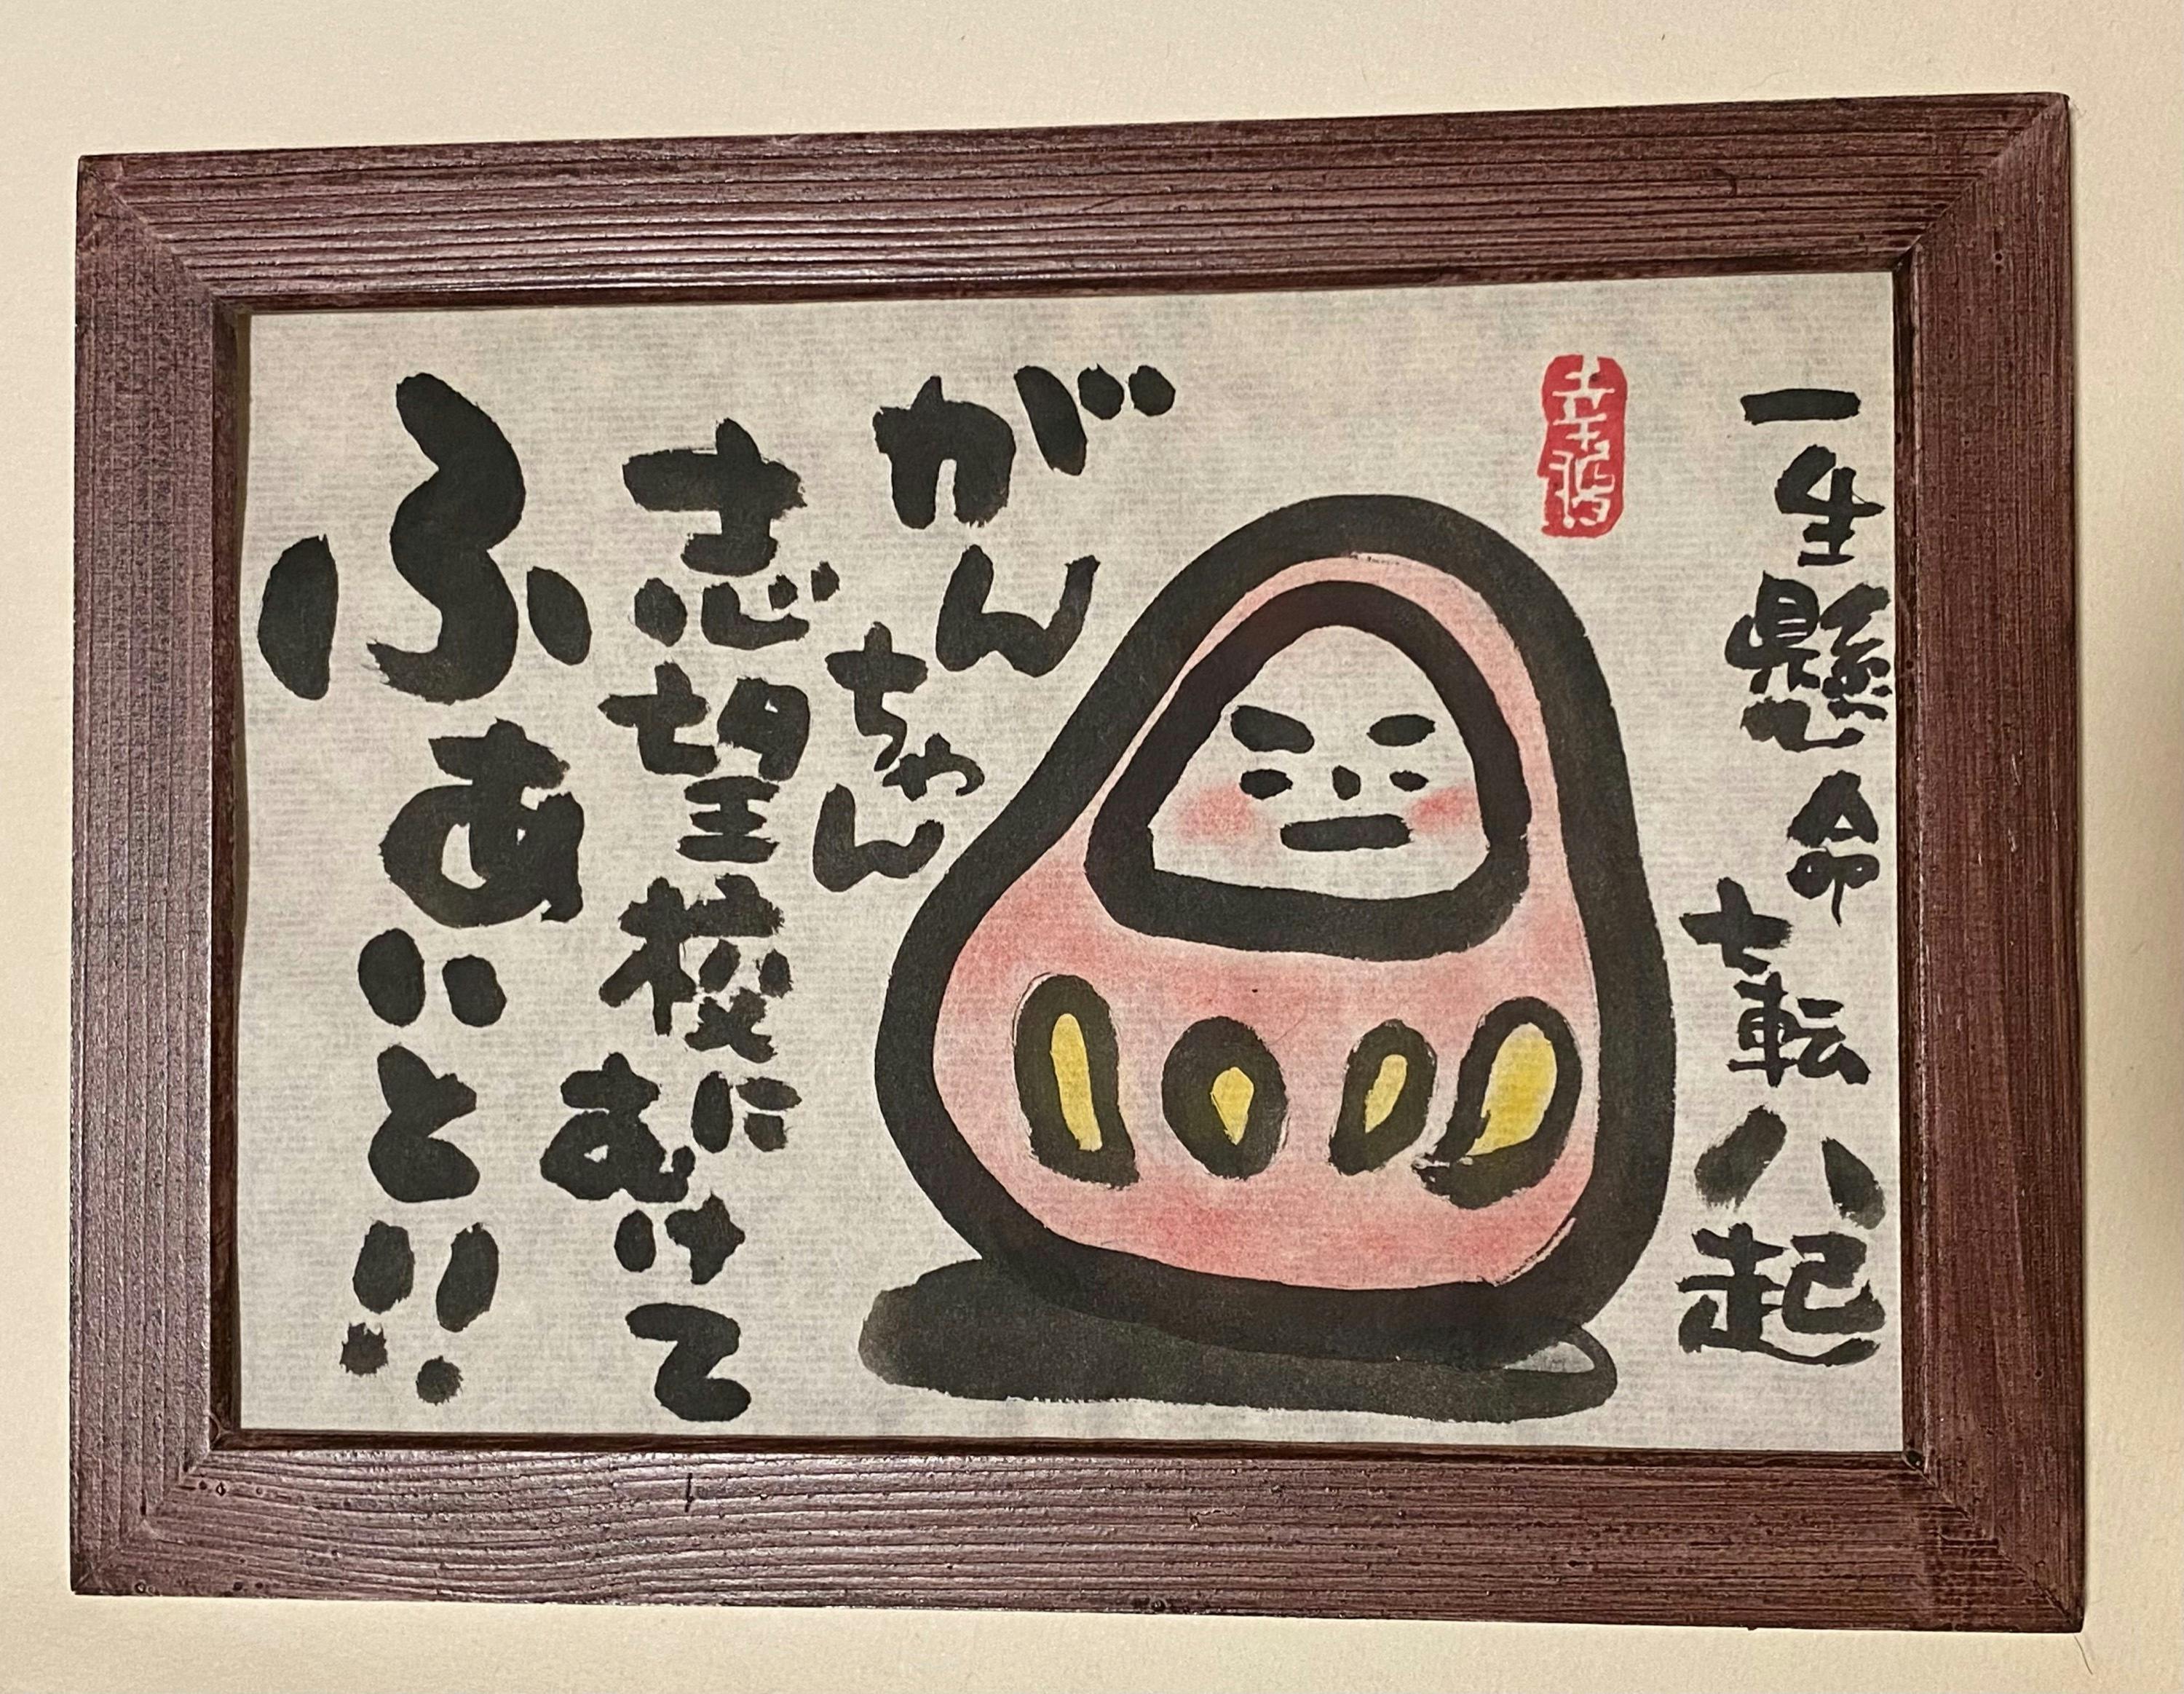 一生懸命
七転八起
がん
ちゃん
志望校に
むけて
ふぁいと!!